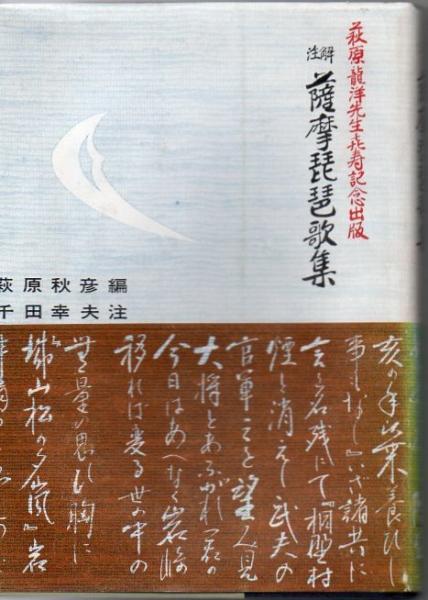 萩原龍洋先生喜寿記念出版
注解
薩摩琵琶歌集
萩原秋彦編
千田幸夫注
養ひし
事もなし』いざ諸共に
名残にて『桐野村
煙と消えし武夫の
官軍これを望み見
大将とあふがれ
今日はあへなく岩崎
移れば変る世の中の
無量の思ひ胸に
城山松の夕嵐』岩